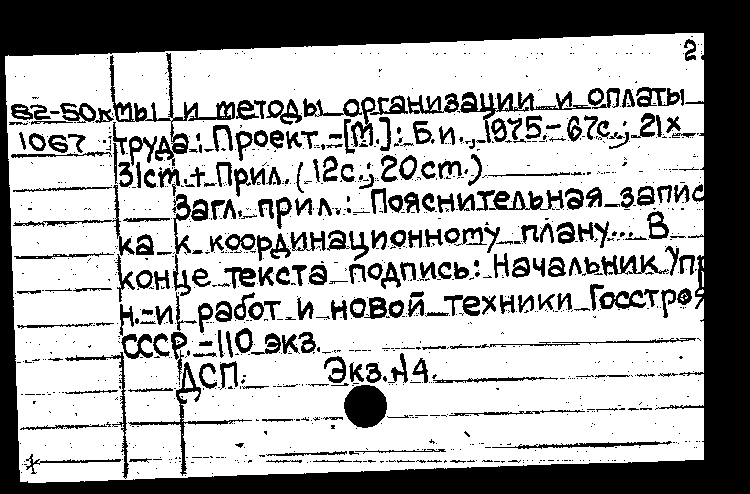 2.
82-50к мы и методы организации и оплаты
1067 труда: Проект.-[М.]: Б.и., 1975.-67с.; 21х
31cm.+ Прил. (12с.; 20cm.)
Загл. прил.: Пояснительная запис
ка к координационному плану... В
конце текста подпись: Начальник Упр
н.-и. работ и новой техники Госстроя
СССР.-110 экз.
ДСП. Экз.№4.